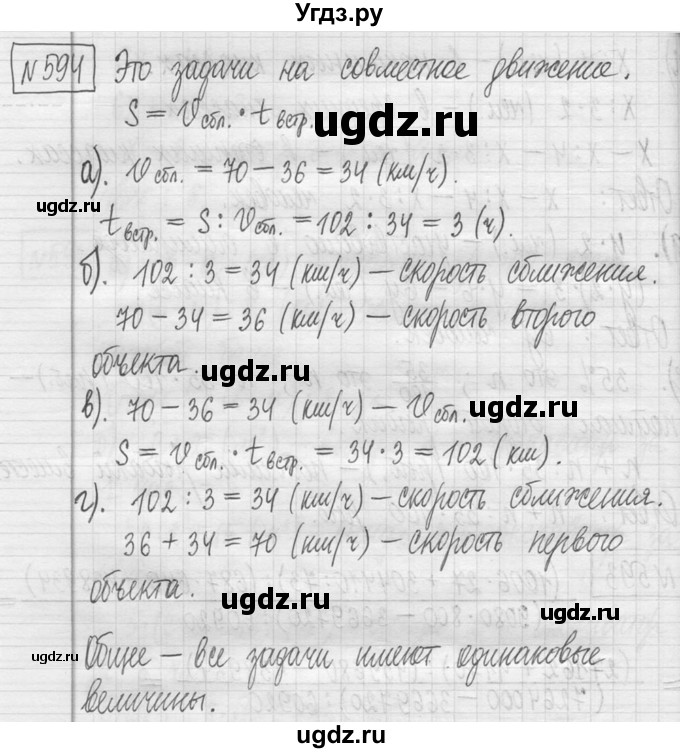 Угдз.ру
№594 Это задачи на совместное движение.
S = Vсбл. · tвстр.
ugdz.ru
а). Vсбл. = 70 – 36 = 34 (км/ч).
ugdz.ru
tвстр. = S : Vсбл. = 102 : 34 = 3 (ч).
ugdz.ru
б). 102 : 3 = 34 (км/ч) – скорость сближения.
70 – 34 = 36 (км/ч) – скорость второго
объекта.
ugdz.ru
в). 70 – 36 = 34 (км/ч) – Vсбл.
ugdz.ru
S = Vсбл. · tвстр. = 34 · 3 = 102 (км).
г). 102 : 3 = 34 (км/ч) – скорость сближения.
36 + 34 = 70 (км/ч) – скорость первого
объекта.
ugdz.ru
ugdz.ru
Общее – все задачи имеют одинаковые
ugdz.ru
величины.
ugdz.ru